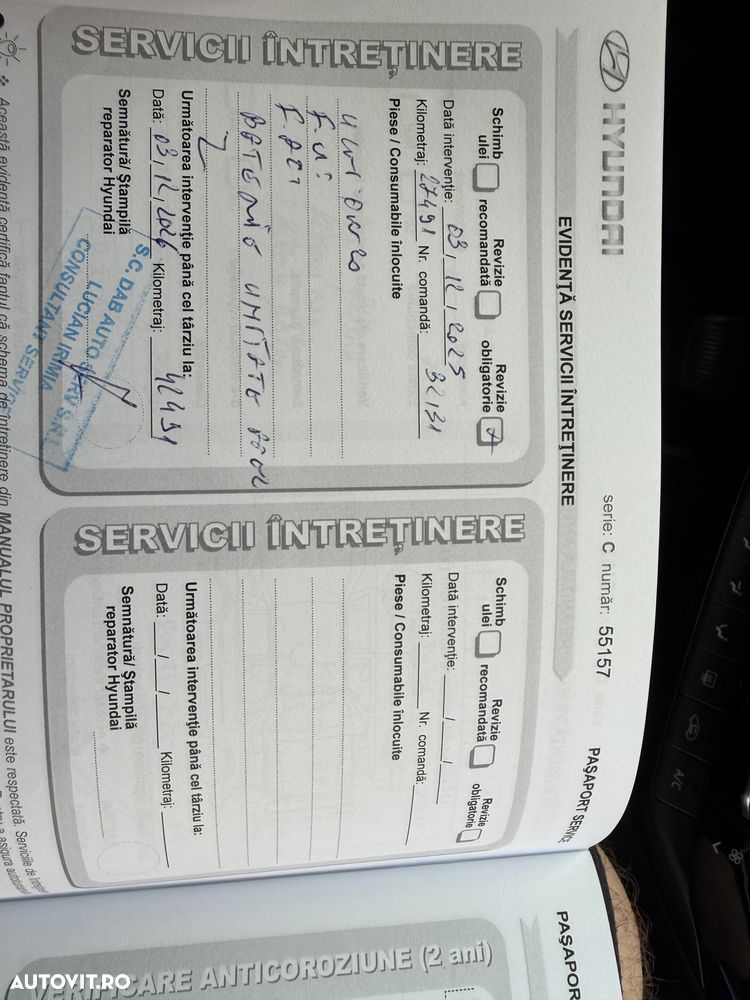 HYUNDAI
serie: C număr: 55157
PAŞAPORT SERVICE
EVIDENŢĂ SERVICII ÎNTREŢINERE
SERVICII ÎNTREŢINERE
Schimb ulei
Revizie recomandată
Revizie obligatorie
Dată intervenţie: 03 / 12 / 2025
Kilometraj: 27491 Nr. comandă: 32131
Piese / Consumabile înlocuite
Următoarea intervenţie până cel târziu la:
Dată: 03 / 12 / 2026 Kilometraj: 42491
Semnătură/ Ştampilă
reparator Hyundai
S.C. DAB AUTO
LUCIAN IRIMIA
CONSULTANT SERVICE
SERVICII ÎNTREŢINERE
Schimb ulei
Revizie recomandată
Revizie obligatorie
Dată intervenţie: / /
Kilometraj: Nr. comandă:
Piese / Consumabile înlocuite
Următoarea intervenţie până cel târziu la:
Dată: / / Kilometraj:
Semnătură/ Ştampilă
reparator Hyundai
Această evidenţă certifică faptul că schema de întreţinere din MANUALUL PROPRIETARULUI este respectată. Serviciile de
PAŞAPOR
VERIFICARE ANTICOROZIUNE (2 ani)
A/C
AUTOVIT.RO